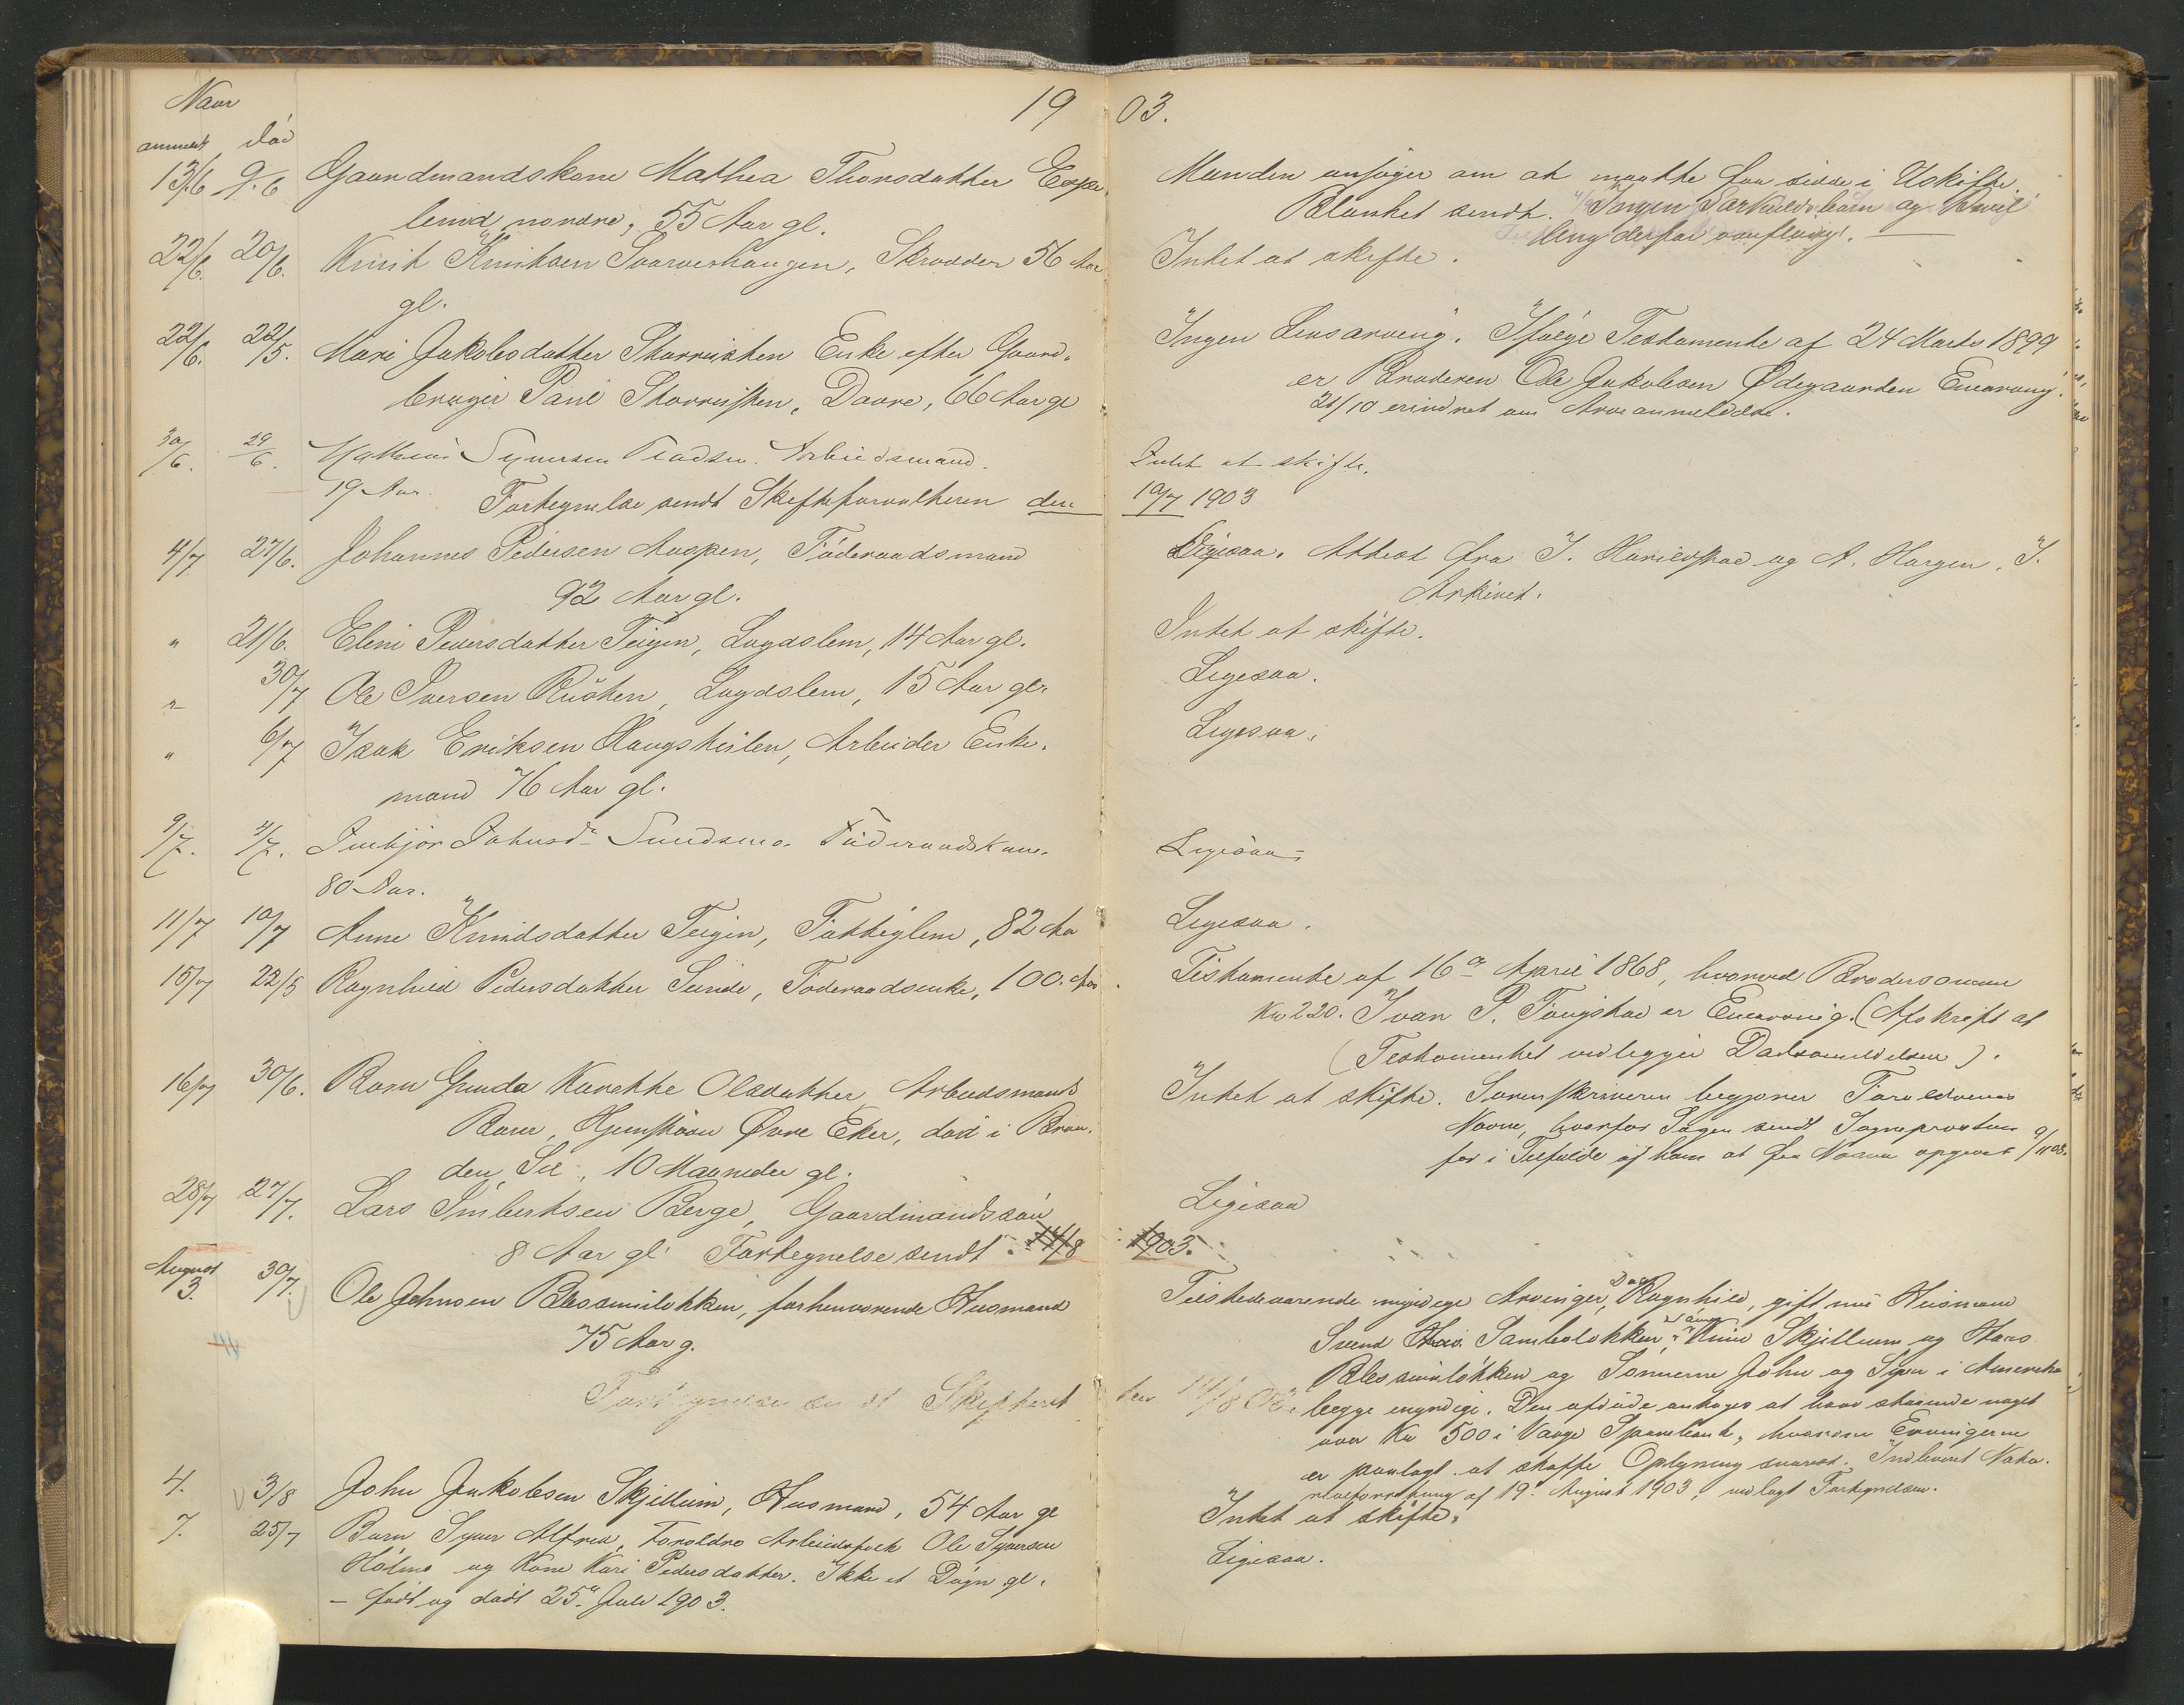 Naar
1903.
anmeldt död
13/6 9/6 Gaardmandskone Mathea Thorsdatter Espe-
lund nordre, 55 Aar gl.
Manden ansöger om at maatte faa sidde i Uskifte.
Blanket sendt. Ingen Særkuldsbörn og Bevil-
ling derfor overflödig.
22/6. 20/6. Knut Knutsen Svarverhaugen, Skrædder 56 Aar
gl.
Intet at skifte.
22/6. 22/5. Mari Jakobsdatter Storrusten Enke efter Gaard-
bruger Paul Storrusten, Dovre, 66 Aar gl
Ingen Livsarving. Ifölge Testamente af 24 Marts 1899
er Broderen Ole Jakobsen Ødegaarden Enearving.
21/10 erindret om Arveanmeldelse.
30/6. 29/6. Mathias Syversen Arbeidsmand.
19 Aar.
Intet at skifte.
Fortegnelse sendt Skifteforvalteren den 10/7 1903
4/7 27/6. Johannes Pedersen Aaspen, Föderaadsmand
92 Aar gl.
Ligesaa. Attest fra I. Harildstad og A. Horgen. I.
Arkivet.
" 21/6. Eline Pedersdatter Teigen, Lægdslem, 14 Aar gl.
Intet at skifte.
" 30/7 Ole Iversen Rusten, Lægdslem, 15 Aar gl.
Ligesaa.
" 6/7 Isak Eriksen Haugskeilen, Arbeider Enke-
mand 76 Aar gl.
Ligesaa.
9/7. 4/7. Imbjör Johnsdr Sundsmo. Föderaadskone.
80 Aar.
Ligesaa
11/7 10/7 Anne Knudsdatter Teigen, Fattiglem, 82 Aa
Ligesaa.
15/7 22/5 Ragnhild Pedersdatter Sunde, Föderaadsenke, 100. Aar.
Testamente af 16de April 1868, hvorved Brodersönnen
Kr 220. Ivar P. Tougstad er Enearving. (Afskrift af
(Testamentet vedlægges Dödsanmeldelsen).
16/7 30/6. Barn Gunda Karethe Olsdatter Arbeidsmands
Barn, Hjemsted Øvre Eker, död i Bræn-
den, Sel, 10 Maaneder gl.
Intet at skifte. Sorenskriveren begjærer Forældrenes
Navne, hvorfor Sagen sendt Sogneprosten
for i Tilfælde af ham at faa Navne opgivet 9/11 03.
28/7 27/7. Lars Imbertsen Berge, Gaardmandssön
8 Aar gl.
Ligesaa
Fortegnelse sendt 14/8 1903.
August
3. 30/7. Ole Johnsen Blessumlökken, forhenværende Husmand
75 Aar g.
Tilstedeværende myndige Arvinger, Ragnhild, gift med Husmand
Svend Sambolökken, Skjellum og Hans
Blessumlökken og Sönnerne John og Syver i Amerika
begge myndige. Den afdöde antages at have staaende noget
over Kr 500 i Vaage Sparebank, hvorom Arvingerne
er paalagt at skaffe Oplysning snarest. Indleveret Nota-
rialforretning af 19. August 1903, vedlagt Fortegnelsen.
Fortegnelse sendt Skifteret den 14/8 03.
4. 3/8 John Jakobsen Skjellum, Husmand, 54 Aar gl
Intet at skifte.
7. 25/7 Barn Syver Alfred, Forældre Arbeidsfolk Ole Syversen
Holmo og Kone Kari Pedersdatter. Ikke et Dögn gl.
– födt og död 25de Juli 1903.
Ligesaa.